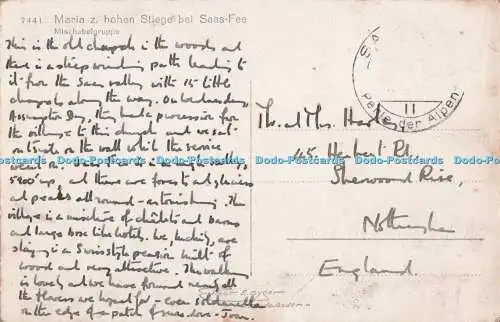 7441 Maria z. hohen Stiege bei Saas-Fee
Mischabelgruppe
This is the old chapel in the woods and
there is a steep winding path leading to
it from the Saas valley with 15 little
chapels along the way. On Wednesday,
Assumption Day, they had a procession from
the village to this chapel and we sat
on the wall whilst the service
went on. Saas Fee is in a valley
5900' up, and there are forests and glaciers
and peaks all round - astonishing. The
village is a mixture of chalets and barns
and large box like hotels. We, luckily, are
staying in a Swiss style pension built of
wood and very attractive. The walking
is lovely and we have found nearly all
the flowers we hoped for - even soldanella
on the edge of a patch of snow. love - Joan.
Perle der Alpen
11
Mr. and Mrs. Hart
45 Herbert Rd,
Sherwood Rise,
Nottingham
England.
Dodo-Postcards Dodo-Postcards Dodo-Postcards Dodo-Postcards Dodo-Postcards Dodo-Postcards